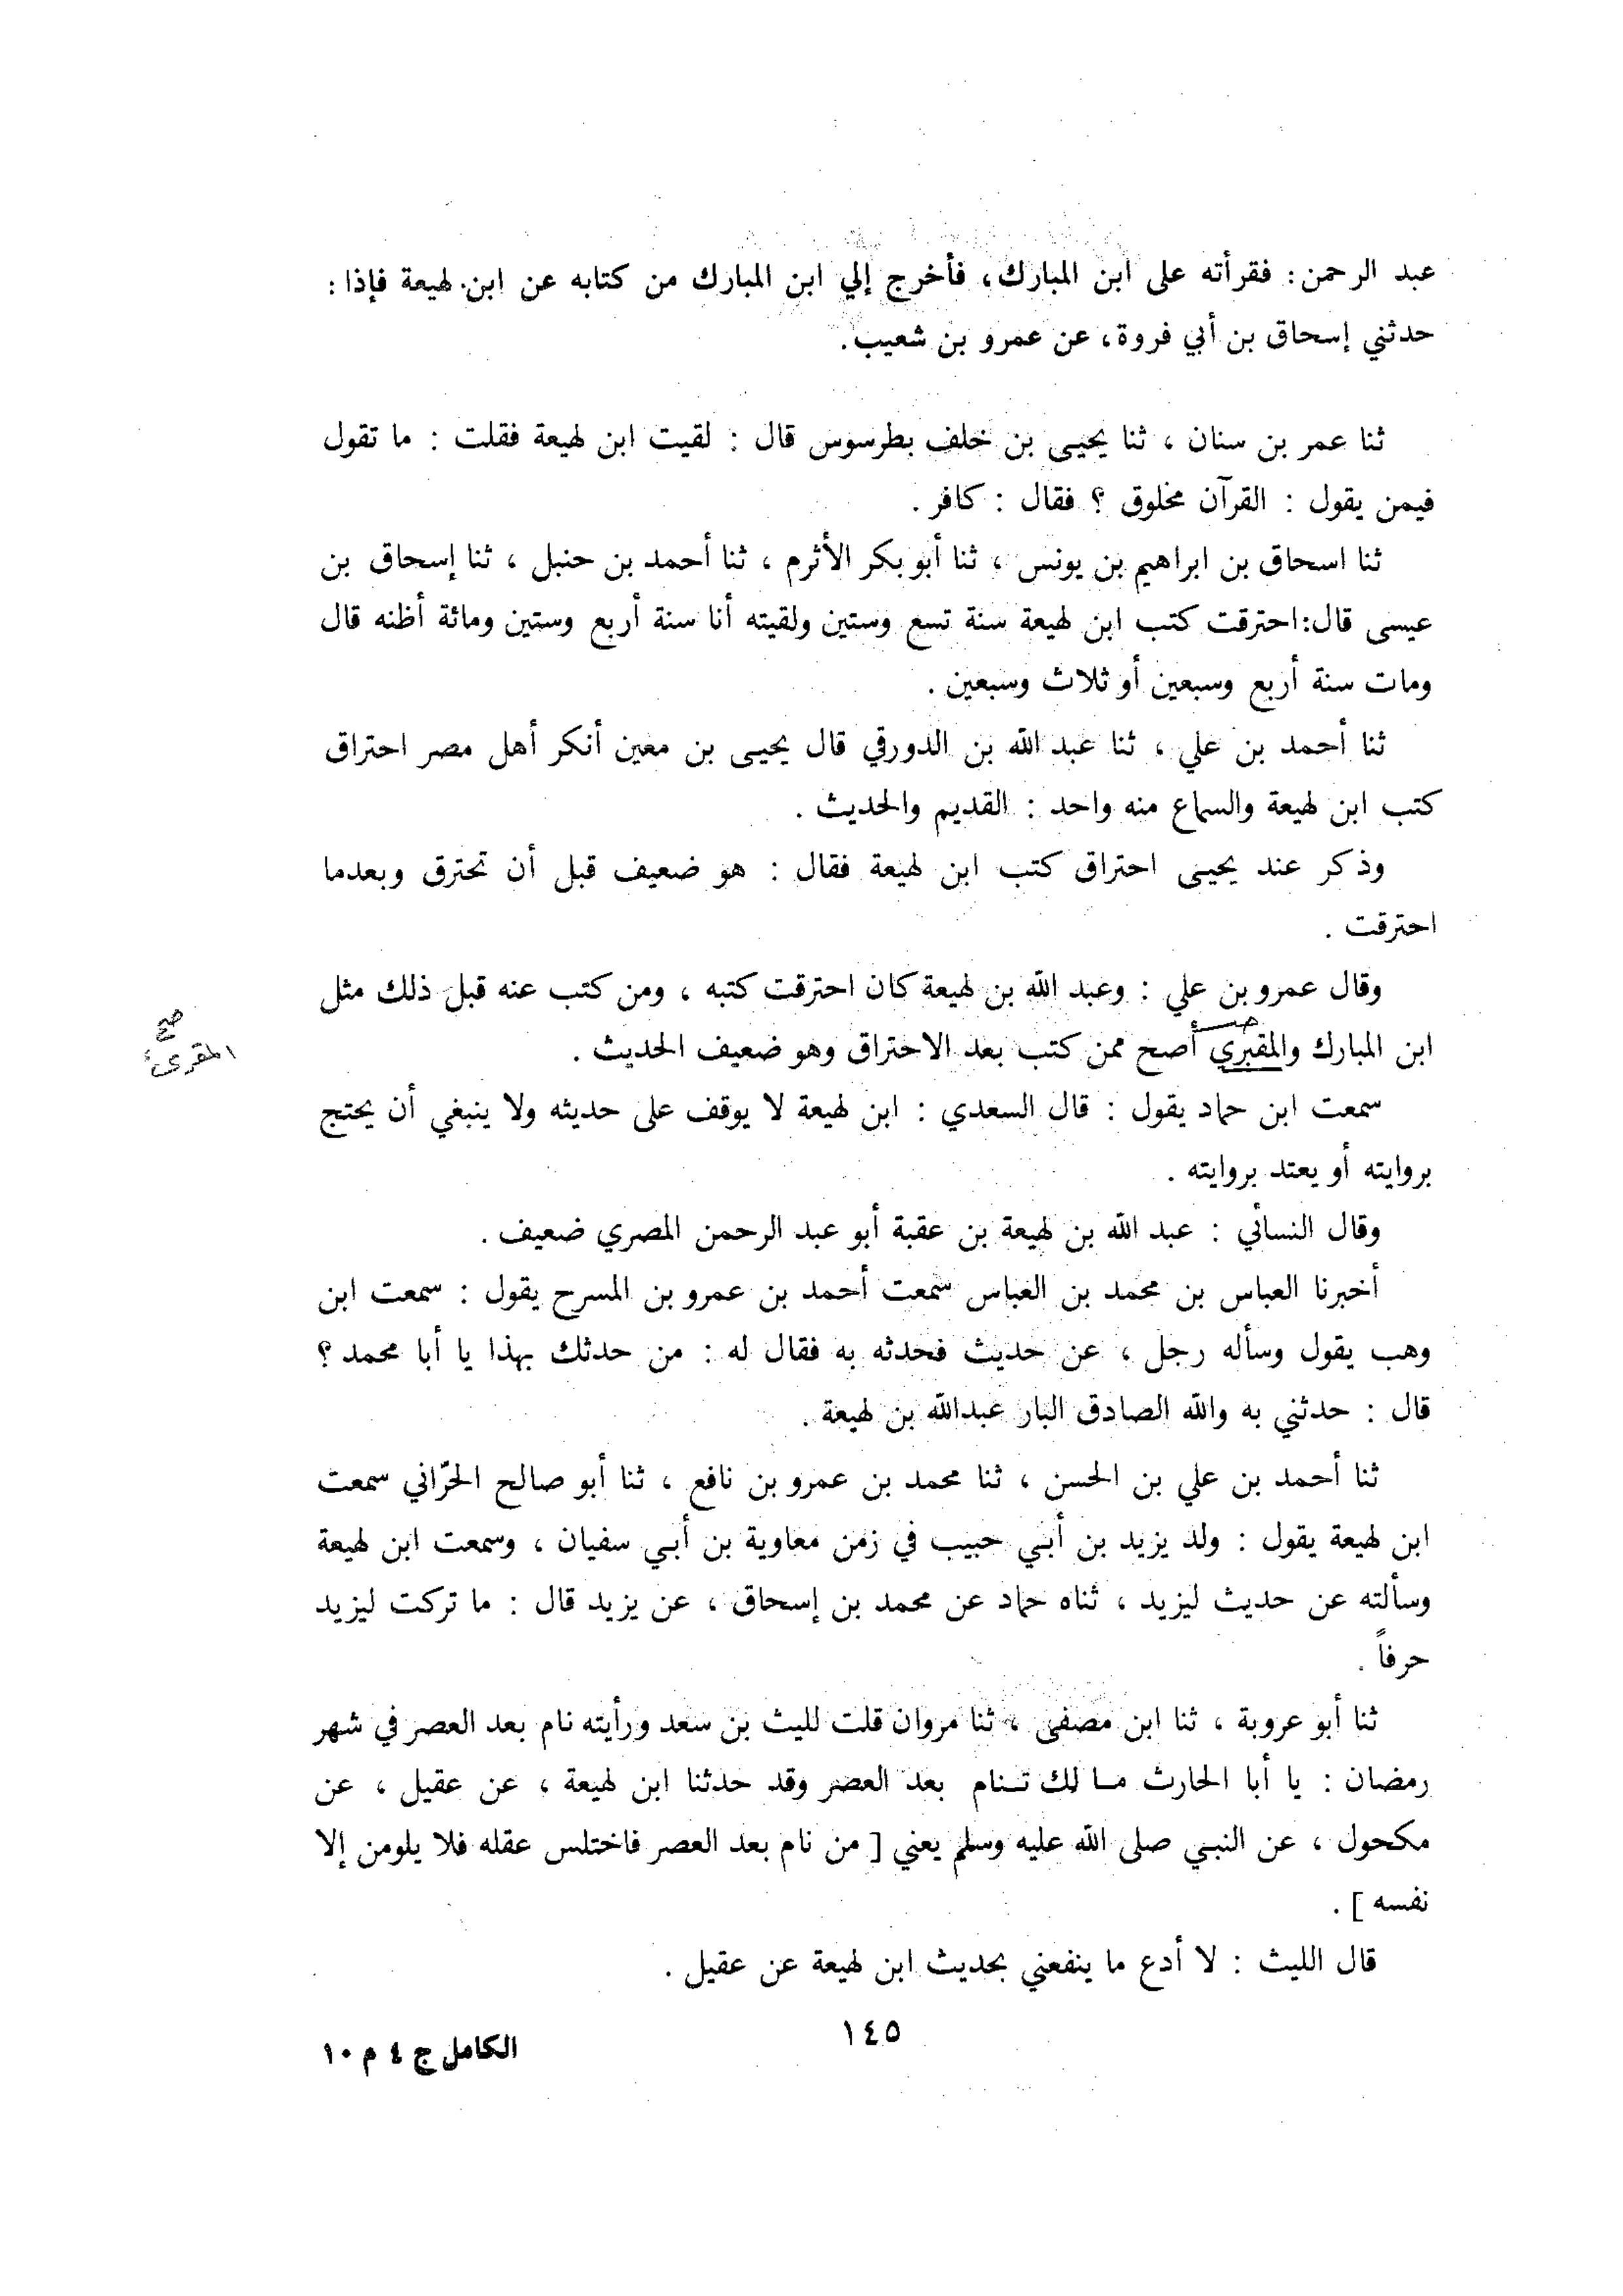 عبد الرحمن: فقرأته على ابن المبارك، فأخرج إلي ابن المبارك من كتابه عن ابن لهيعة فإذا :
حدثني إسحاق بن أبي فروة، عن عمرو بن شعيب.
ثنا عمر بن سنان ، ثنا يحيى بن خلف بطرسوس قال : لقيت ابن لهيعة فقلت : ما تقول
فيمن يقول : القرآن مخلوق ؟ فقال : كافر .
ثنا اسحاق بن ابراهيم بن يونس ، ثنا أبو بكر الأثرم ، ثنا أحمد بن حنبل ، ثنا إسحاق بن
عيسى قال: احترقت كتب ابن لهيعة سنة تسع وستين ولقيته أنا سنة أربع وستين ومائة أظنه قال
ومات سنة أربع وسبعين أو ثلاث وسبعين .
ثنا أحمد بن علي ، ثنا عبد الله بن الدورقي قال يحيى بن معين أنكر أهل مصر احتراق
كتب ابن لهيعة والسماع منه واحد : القديم والحديث .
وذكر عند يحيى احتراق كتب ابن لهيعة فقال : هو ضعيف قبل أن تحترق وبعدما
احترقت .
وقال عمرو بن علي : وعبد الله بن لهيعة كان احترقت كتبه ، ومن كتب عنه قبل ذلك مثل
ابن المبارك والمقبري أصح ممن كتب بعد الاحتراق وهو ضعيف الحديث .
صح
المقرئ
سمعت ابن حماد يقول : قال السعدي : ابن لهيعة لا يوقف على حديثه ولا ينبغي أن يحتج
بروايته أو يعتد بروايته .
وقال النسائي : عبد الله بن لهيعة بن عقبة أبو عبد الرحمن المصري ضعيف .
أخبرنا العباس بن محمد بن العباس سمعت أحمد بن عمرو بن المسرح يقول : سمعت ابن
وهب يقول وسأله رجل ، عن حديث فحدثه به فقال له : من حدثك بهذا يا أبا محمد ؟
قال : حدثني به والله الصادق البار عبدالله بن لهيعة .
ثنا أحمد بن علي بن الحسن ، ثنا محمد بن عمرو بن نافع ، ثنا أبو صالح الحرّاني سمعت
ابن لهيعة يقول : ولد يزيد بن أبي حبيب في زمن معاوية بن أبي سفيان ، وسمعت ابن لهيعة
وسألته عن حديث ليزيد ، ثناه حماد عن محمد بن إسحاق ، عن يزيد قال : ما تركت ليزيد
حرفاً .
ثنا أبو عروبة ، ثنا ابن مصفى ، ثنا مروان قلت لليث بن سعد ورأيته نام بعد العصر في شهر
رمضان : يا أبا الحارث مـا لك تـنام بعد العصر وقد حدثنا ابن لهيعة ، عن عقيل ، عن
مكحول ، عن النبي صلى الله عليه وسلم يعني [ من نام بعد العصر فاختلس عقله فلا يلومن إلا
نفسه ] .
قال الليث : لا أدع ما ينفعني بحديث ابن لهيعة عن عقيل .
١٤٥
الكامل ج ٤ م ١٠